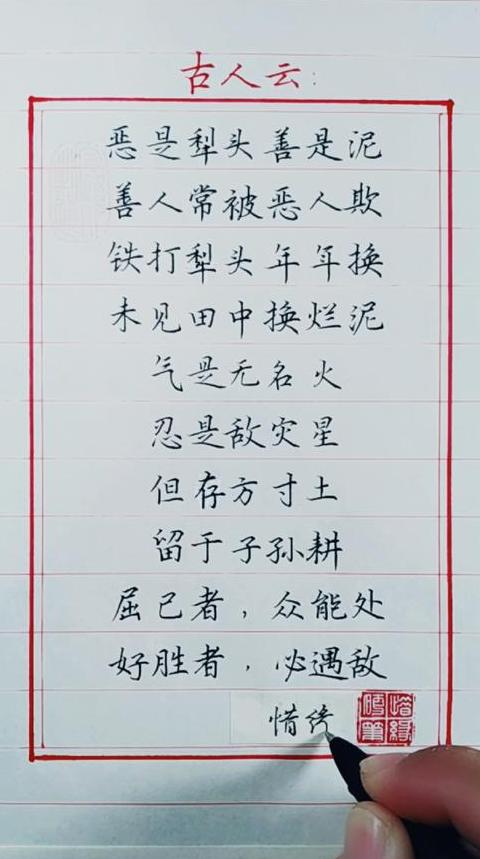 古人云:
恶是犁头善是泥
善人常被恶人欺
铁打犁头年年换
未见田中换烂泥
气是无名火
忍是敌灾星
但存方寸土
留于子孙耕
屈己者,众能处
好胜者,必遇敌
惜缘